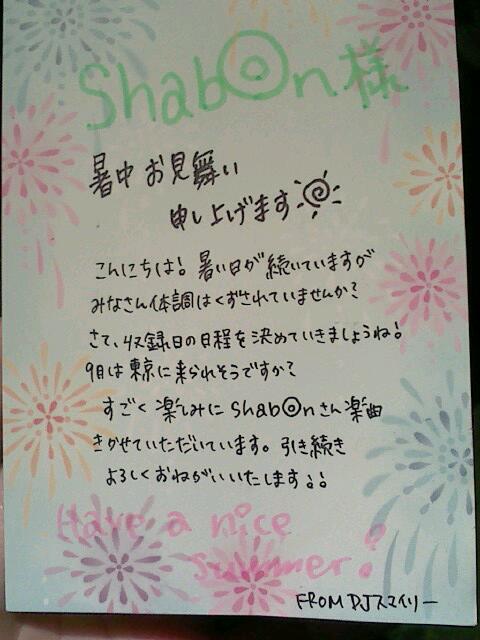 Shab◎n様
暑中お見舞い
申し上げます
こんにちは！暑い日が続いていますが
みなさん体調はくずされていませんか？
さて、収録日の日程を決めていきましょうね！
9月は東京に来られそうですか？
すごく楽しみにshab◎nさん楽曲
きかせていただいています。引き続き
よろしくおねがいいたします！！
Have a nice
summer!
FROM DJスマイリー